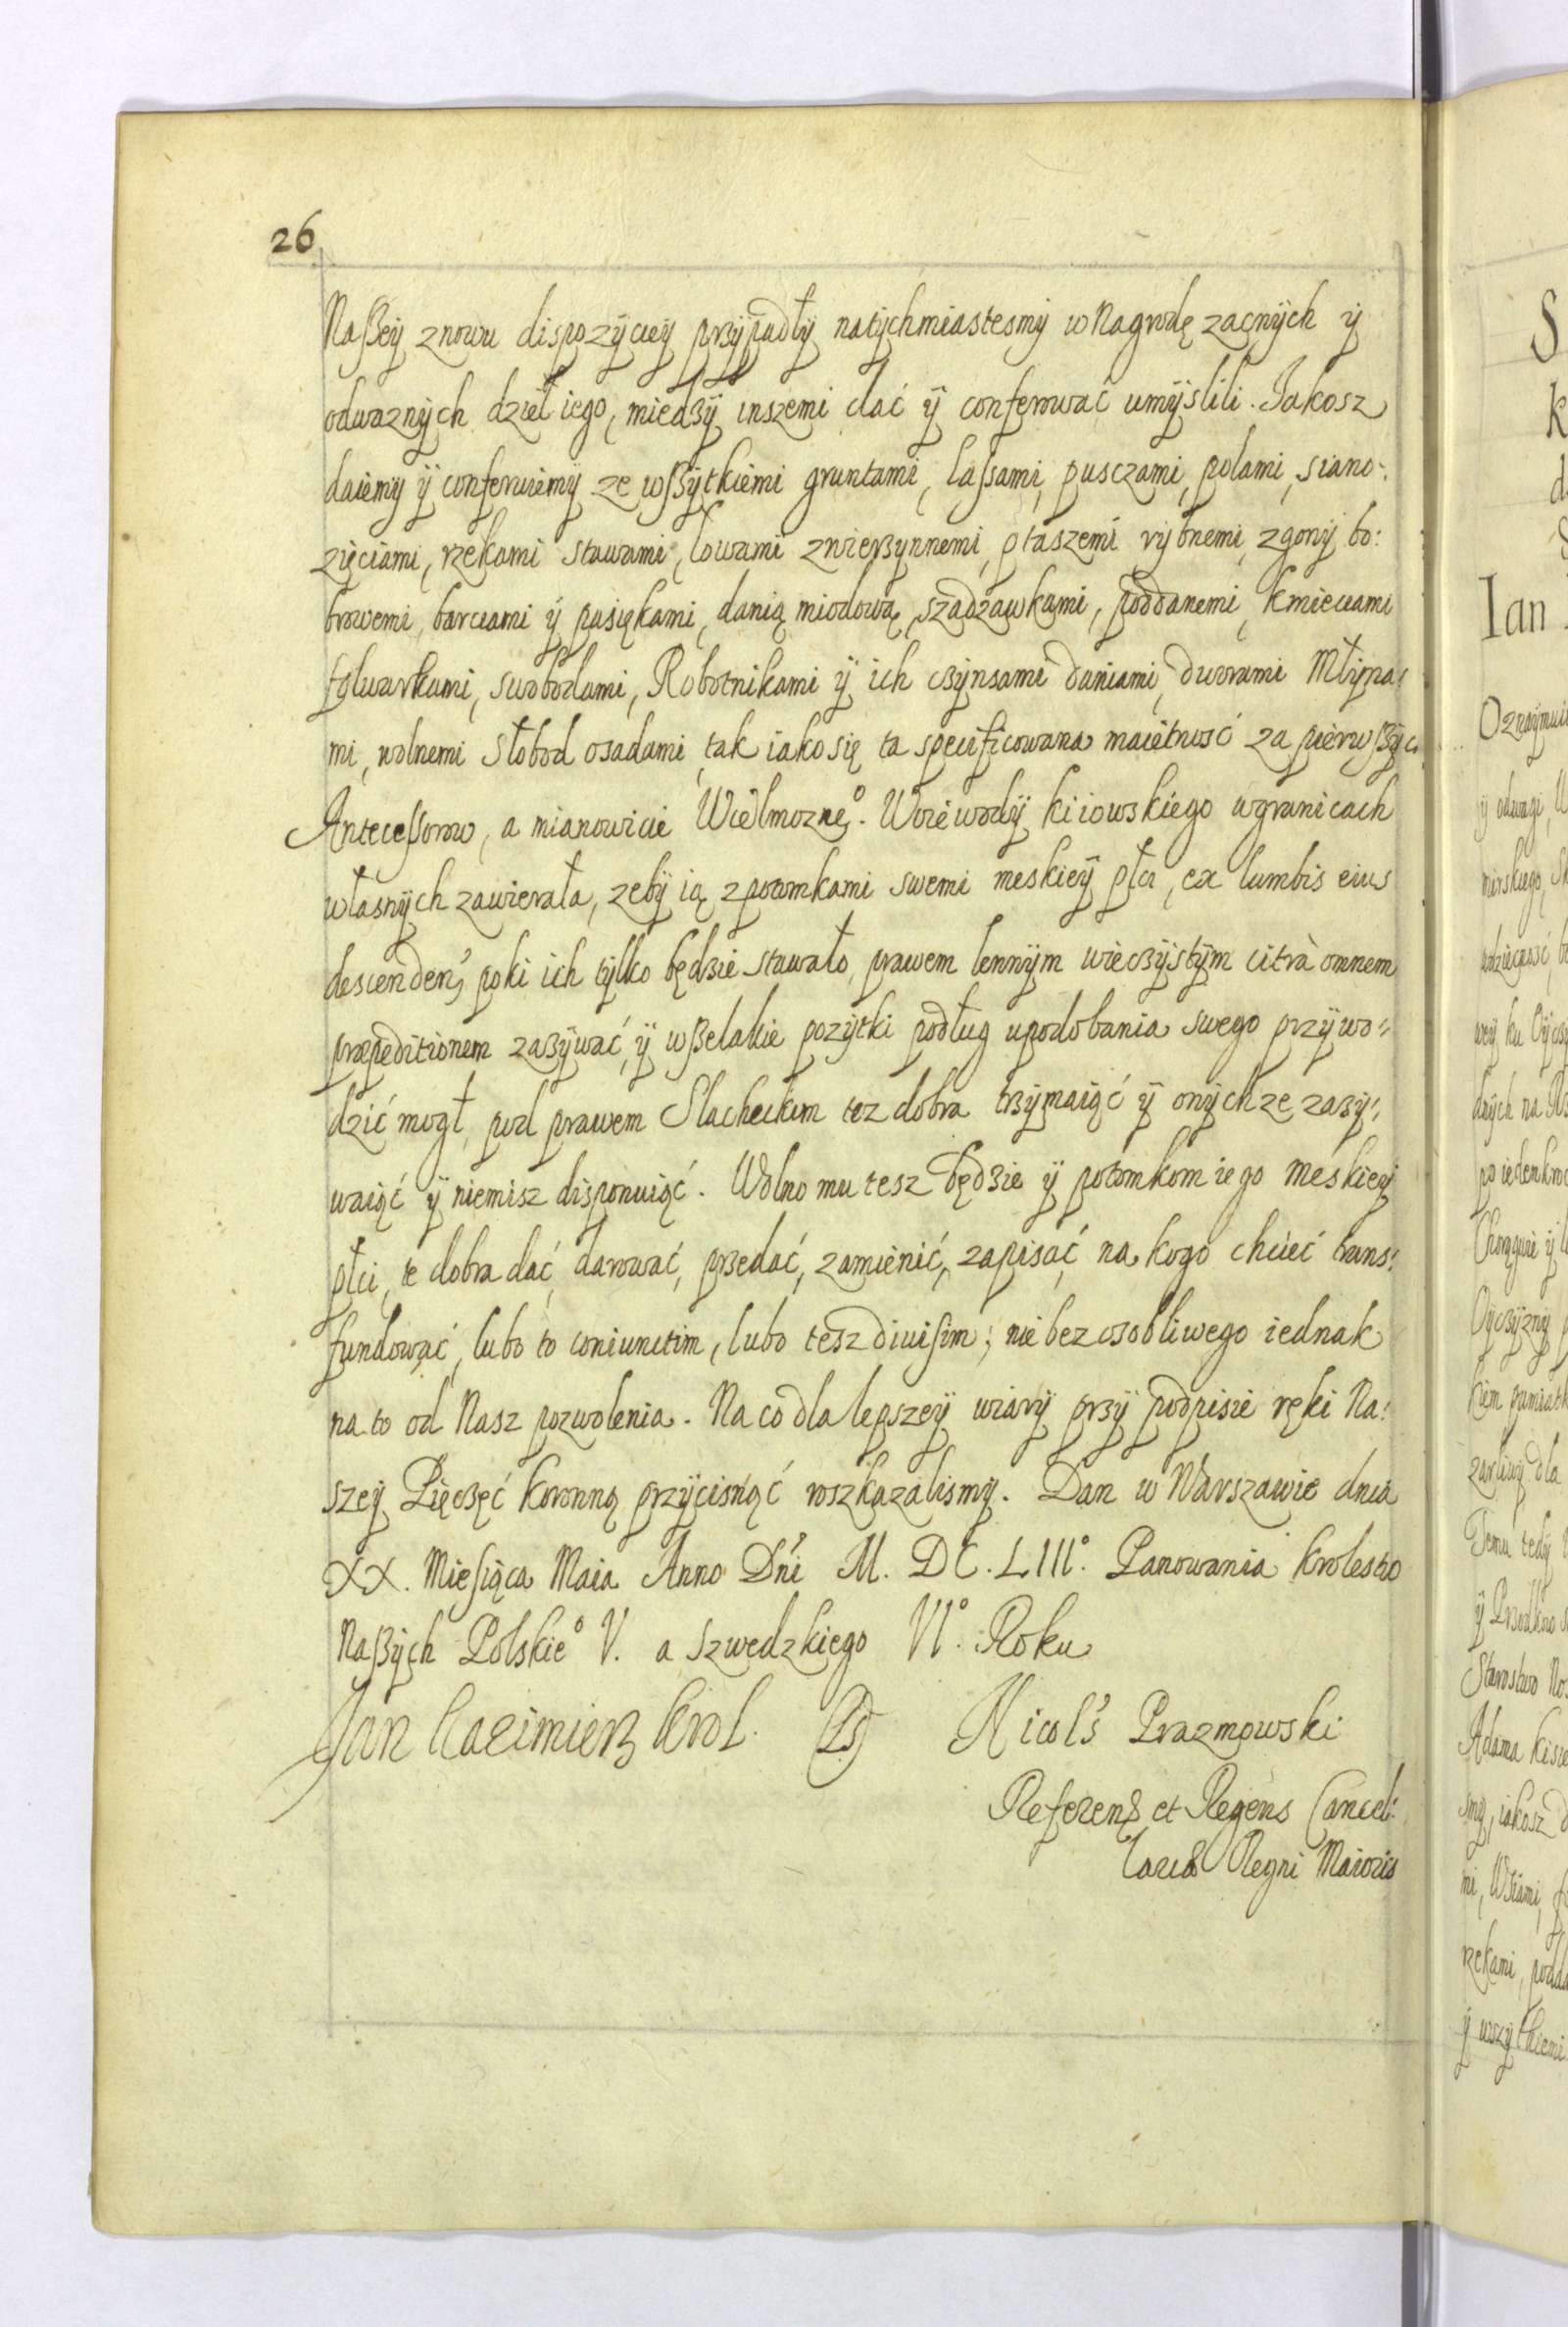 26
Naßey znowu dispozÿciey przÿpadłÿ natÿchmiastesmÿ w Nagrodę zacnÿch ÿ
odwaznÿch dzieł iego, miedzÿ inszemi dać ÿ conferować umÿslili. Jakosz
daiemÿ ÿ conferuiemÿ ze wßÿtkiemi gruntami, lassami, pusczami, polami, siano:
zięciami, rzekami stawami, łowami zwierzynnemi, ptaszemi rÿbnemi, zgonÿ bo:
browemi, barciami ÿ pasiękami, danią miodową, szadzawkami, poddanemi, kmieciami
folwarkami, swobodami, Robotnikami ÿ ich czÿnsami daniami, dworami Młÿna:
mi, wolnemi Słobod osadami, tak iako się ta specificowana maiętność za pierwßÿch
Antecessorow, a mianowicie Wielmozne°. Woiewodÿ kiiowskiego w granicach
własnÿch zawierała, zebÿ ią z potomkami swemi meskieÿ płci, ex lumbis eius
descenden, poki ich tÿlko będzie stawało, prawem lennÿm wieczÿstÿm citrà omnem
præpeditionem zazÿwać, ÿ wßelakie pozÿtki podług upodobania swego przÿwo:
dzić mogł, pod prawem Slacheckim tez dobra trzÿmaiąć ÿ onÿchze zazÿ:
waiąć ÿ niemisz disponuiąć. Wolno mu tesz będzie ÿ potomkom iego meskieÿ
płci, te dobra dać, darować, przedać, zamienić, zapisać, na kogo chcieć trans:
fundować, lubo to coniunctim, lubo tesz diuisim; nie bez osobliwego iednak
na to od Nasz pozwolenia. Na co dla lepszeÿ wiarÿ przÿ podpisie ręki Na:
szeÿ Pięczęć koronną przÿcisnąć roszkazalismÿ. Dan w Warszawie dnia
XX. Miesiąca Maia Anno Dñi M. DC. LIII°. Panowania krolestw
Naßÿch Polskie° V. a szwedzkiego VI°. Roku
Jan Kazimierz krol. LS Nicol's Prazmowski
Referens et Regens Cancel:
lariæ Regni Maioris
Ian